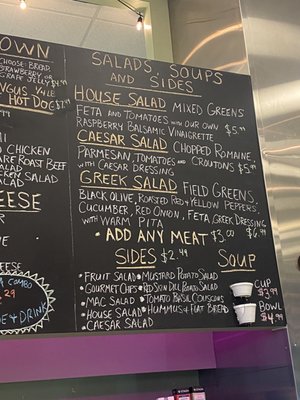 OWN
CHOOSE: BREAD,
STRAWBERRY OR
GRAPE JELLY
HOT DOG
CHICKEN
RARE ROAST BEEF
SALAD
SALAD
COMBO
DRINK
SALADS, SOUPS
AND SIDES
HOUSE SALAD MIXED GREENS
FETA AND TOMATOES WITH OUR OWN $5.99
RASPBERRY BALSAMIC VINAIGRETTE
CAESAR SALAD CHOPPED ROMAINE,
PARMESAN, TOMATOES AND CROUTONS $5.99
WITH CAESAR DRESSING
GREEK SALAD FIELD GREENS,
BLACK OLIVE, ROASTED RED & YELLOW PEPPERS,
CUCUMBER, RED ONION, FETA, GREEK DRESSING
WITH WARM PITA $6.99
• ADD ANY MEAT $3.00
SIDES $2.49
• FRUIT SALAD • MUSTARD POTATO SALAD
• GOURMET CHIPS • RED SKIN DILL POTATO SALAD
• MAC SALAD • TOMATO BASIL COUSCOUS
• HOUSE SALAD • HUMMUS W/ FLAT BREAD
• CAESAR SALAD
SOUP
CUP
$3.99
BOWL
$4.99